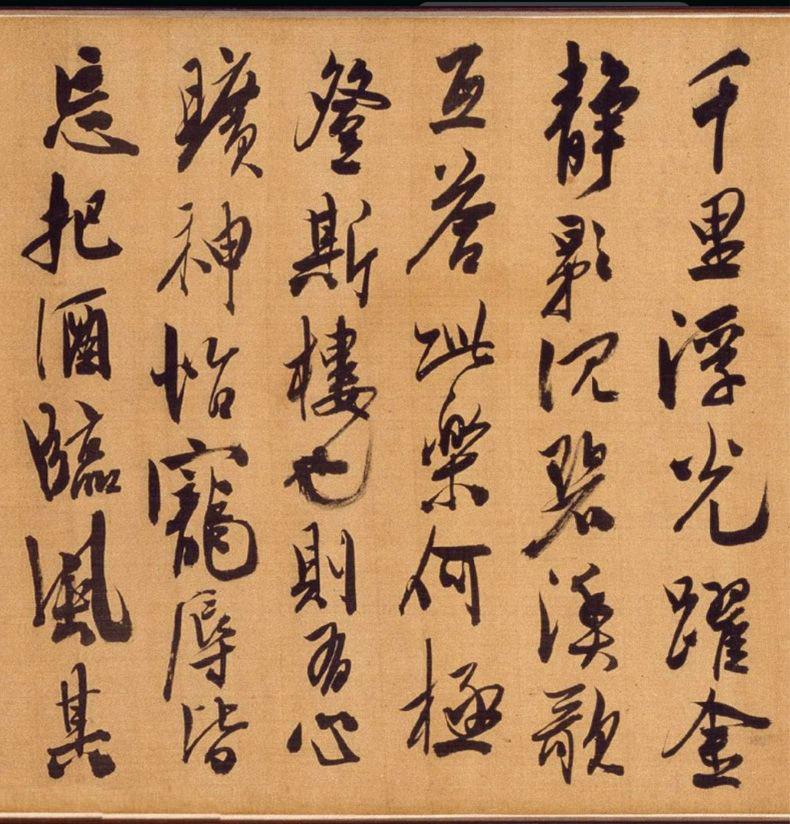 千里浮光躍金
静影沉碧漁歌
互荅此樂何極
登斯樓也則有心
曠神怡寵辱皆
忘把酒臨風其